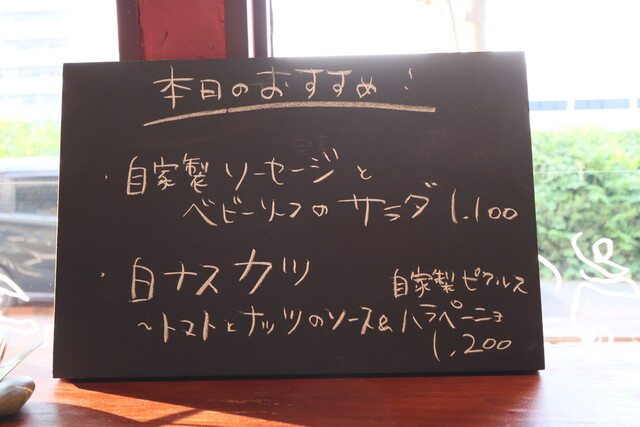 本日のおすすめ!
・自家製ソーセージと
ベビーリーフのサラダ 1,100
・白ナスカツ
自家製ピクルス
～トマトとナッツのソース&ハラペーニョ
1,200